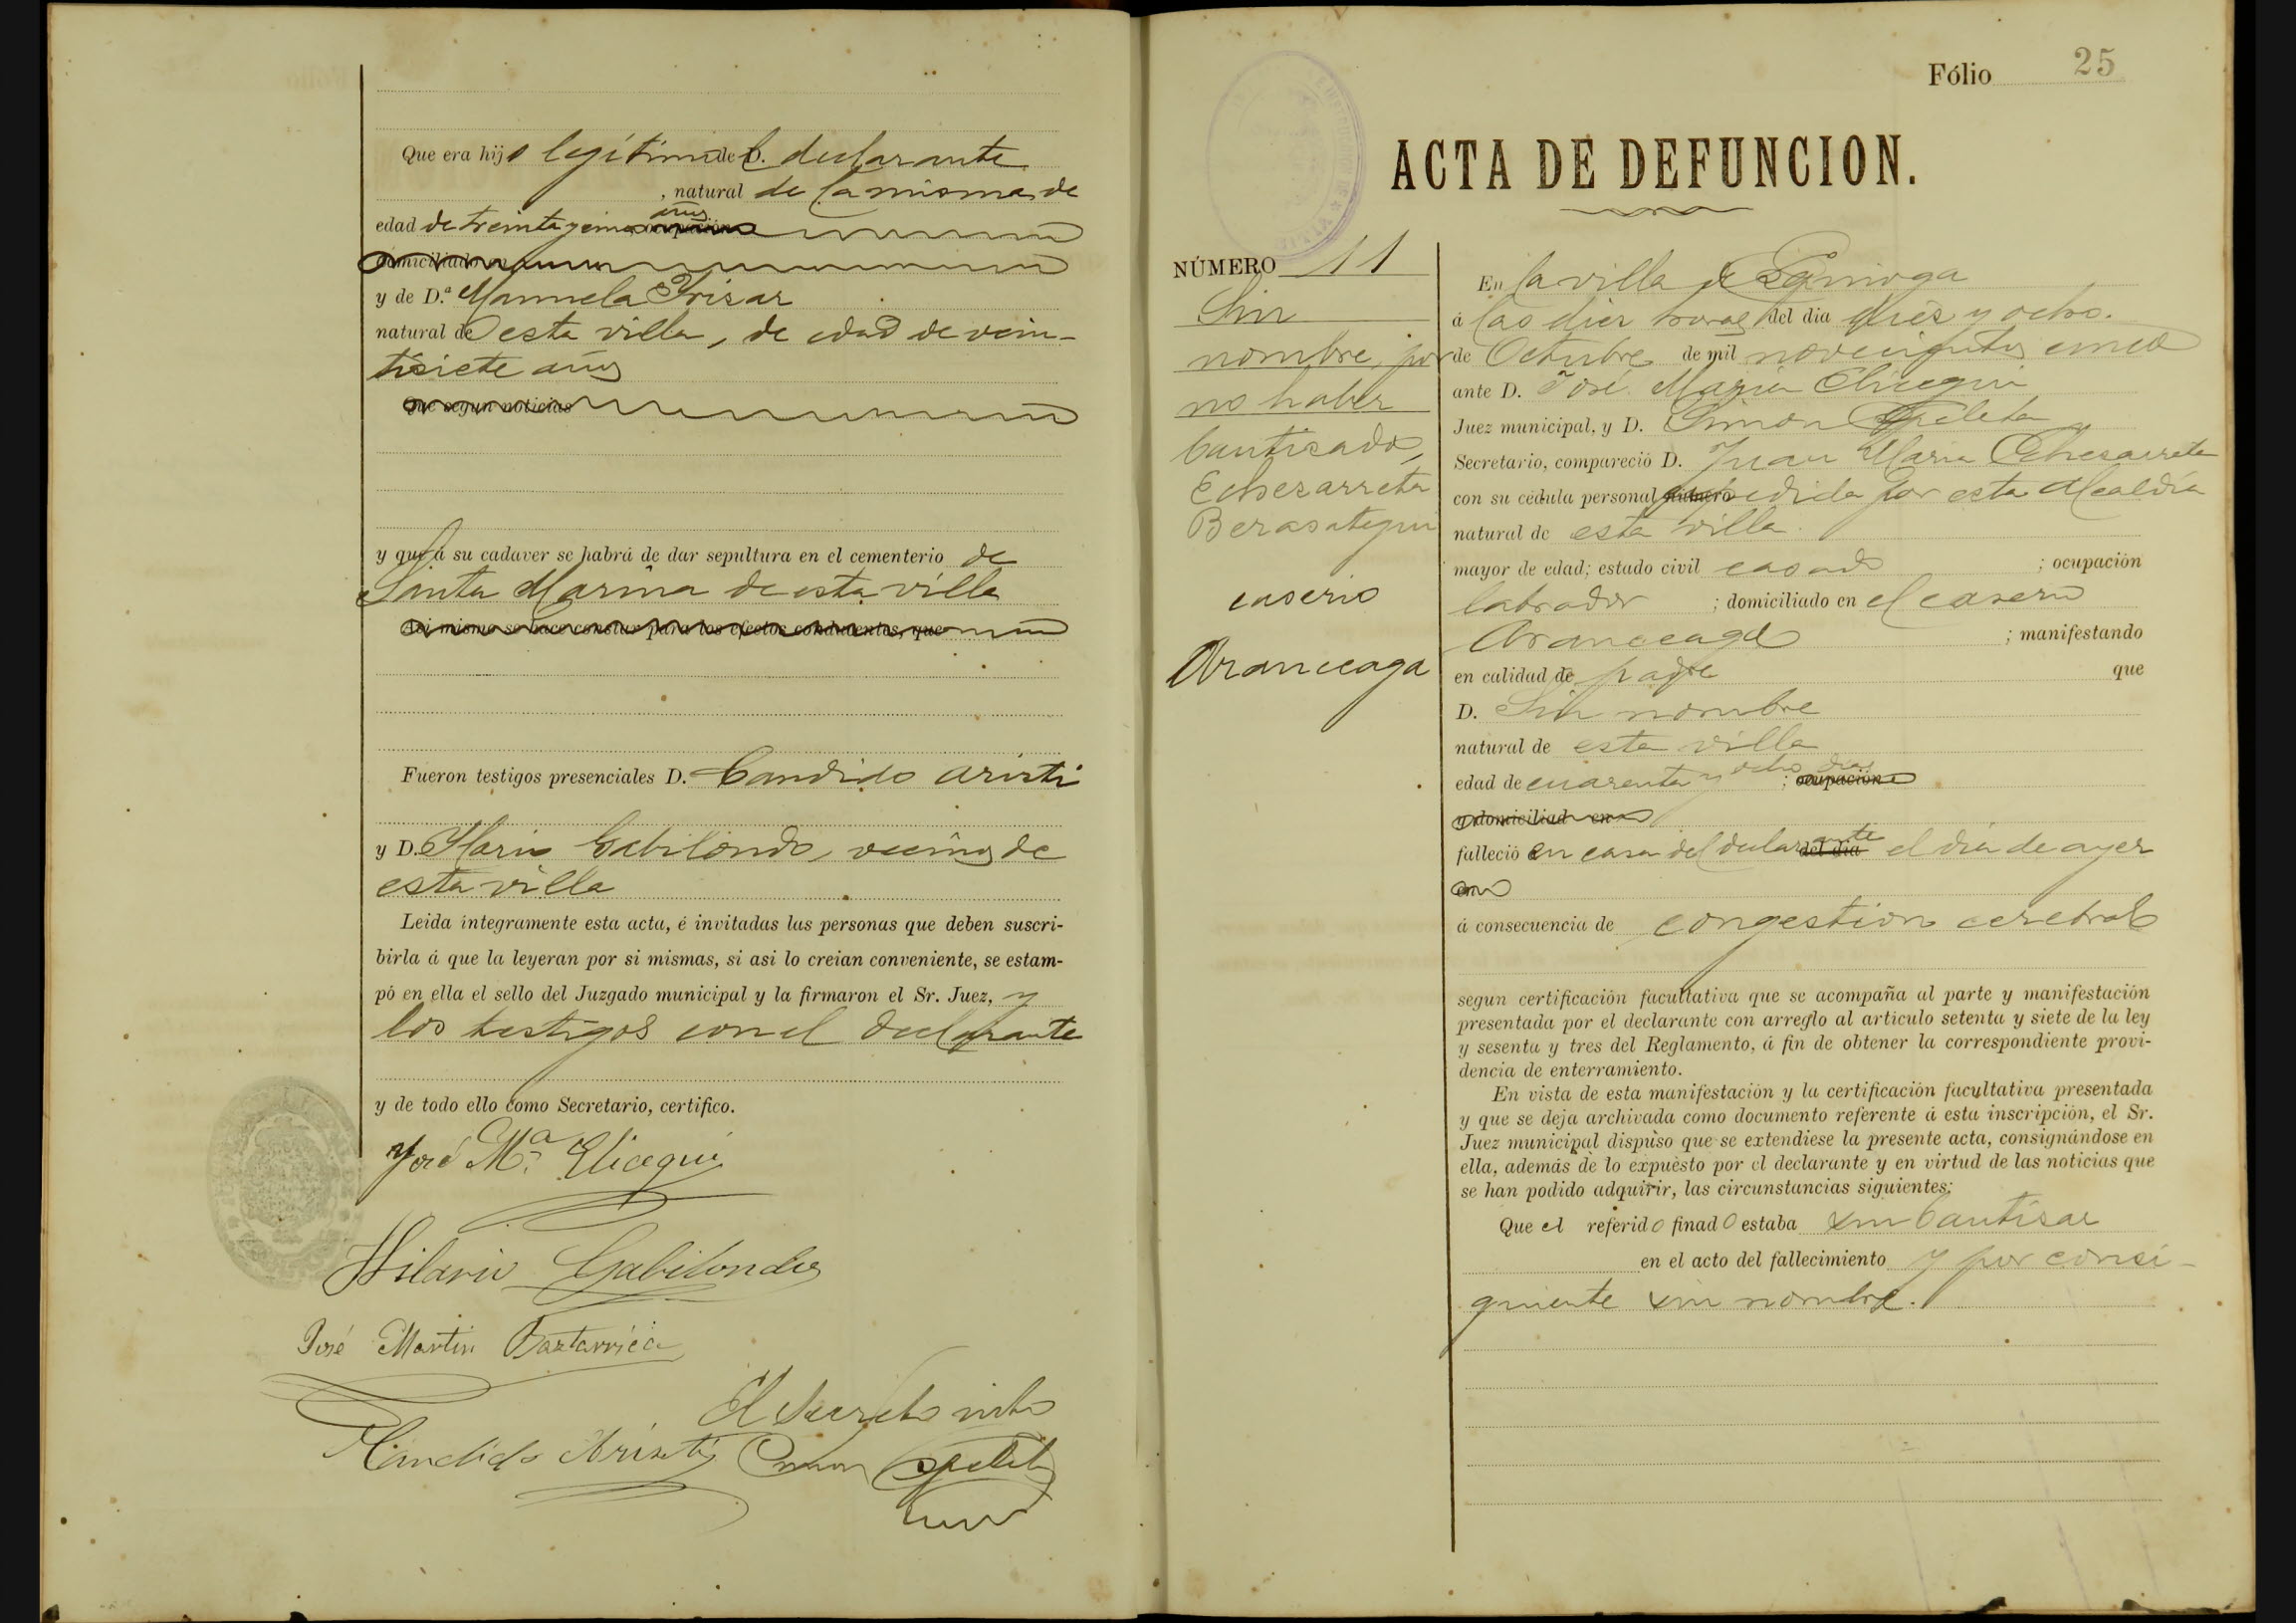 Que era hijo legítimo del declarante
, natural de la misma, de
edad de treinta y cinco años
domiciliado en
y de D.ª Manuela Irizar
natural de esta villa, de edad de vein-
tisiete años
Que segun noticias
y que á su cadaver se habrá de dar sepultura en el cementerio de
Santa Marina de esta villa
Asi mismo se hace constar para los efectos conducentes, que
Fueron testigos presenciales D. Candido Aristi
y D. Hilario Gabilondo, vecinos de
esta villa
Leida íntegramente esta acta, é invitadas las personas que deben suscri-
birla á que la leyeran por si mismas, si asi lo creian conveniente, se estam-
pó en ella el sello del Juzgado municipal y la firmaron el Sr. Juez, y
los testigos con el declarante
y de todo ello como Secretario, certifico.
José M.ª Elicegui
Hilario Gabilondo
José Martin Baztarrica
El Secreto
Candido Aristi Simon
Fólio 25
ACTA DE DEFUNCION.
NÚMERO 11
Sin
nombre, por
no haber
bautizado,
Echezarreta
Berasategui
caserio
Aranceaga
En la villa de
á las diez horas del dia diez y ocho
de Octubre de mil novecientos cinco
ante D. José Maria Elicegui
Juez municipal, y D. Simon
Secretario, compareció D. Juan Maria Echezarreta
con su cédula personal número expedida por esta Alcaldía
natural de esta villa
mayor de edad; estado civil casado ; ocupación
labrador ; domiciliado en el caserio
Aranceaga ; manifestando
en calidad de padre que
D. Sin nombre
natural de esta villa
edad de cuarenta y ocho dias ; ocupación
y domiciliad en
falleció en casa del declarante del dia el dia de ayer
en
á consecuencia de congestion cerebral
segun certificación facultativa que se acompaña al parte y manifestación
presentada por el declarante con arreglo al artículo setenta y siete de la ley
y sesenta y tres del Reglamento, á fin de obtener la correspondiente provi-
dencia de enterramiento.
En vista de esta manifestación y la certificación facultativa presentada
y que se deja archivada como documento referente á esta inscripción, el Sr.
Juez municipal dispuso que se extendiese la presente acta, consignándose en
ella, además de lo expuesto por el declarante y en virtud de las noticias que
se han podido adquirir, las circunstancias siguientes:
Que el referido finado estaba sin bautizar
en el acto del fallecimiento y por consi-
guiente sin nombre.